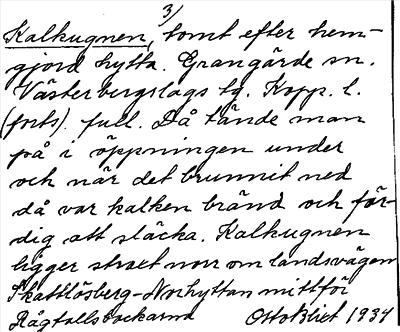 3)
Kalkugnen, tomt efter hem-
gjord hytta. Grangärde sn.
Västerbergslags tg. Kopp. l.
(forts). full. Då tände man
på i öppningen under
och när det brunnit ned
då var kalken bränd och fär-
dig att släcka. Kalkugnen
ligger strax norr om landsvägen
Skattlösberg-Norhyttan mittför
Rågfallsbackarna Otto Blixt 1934